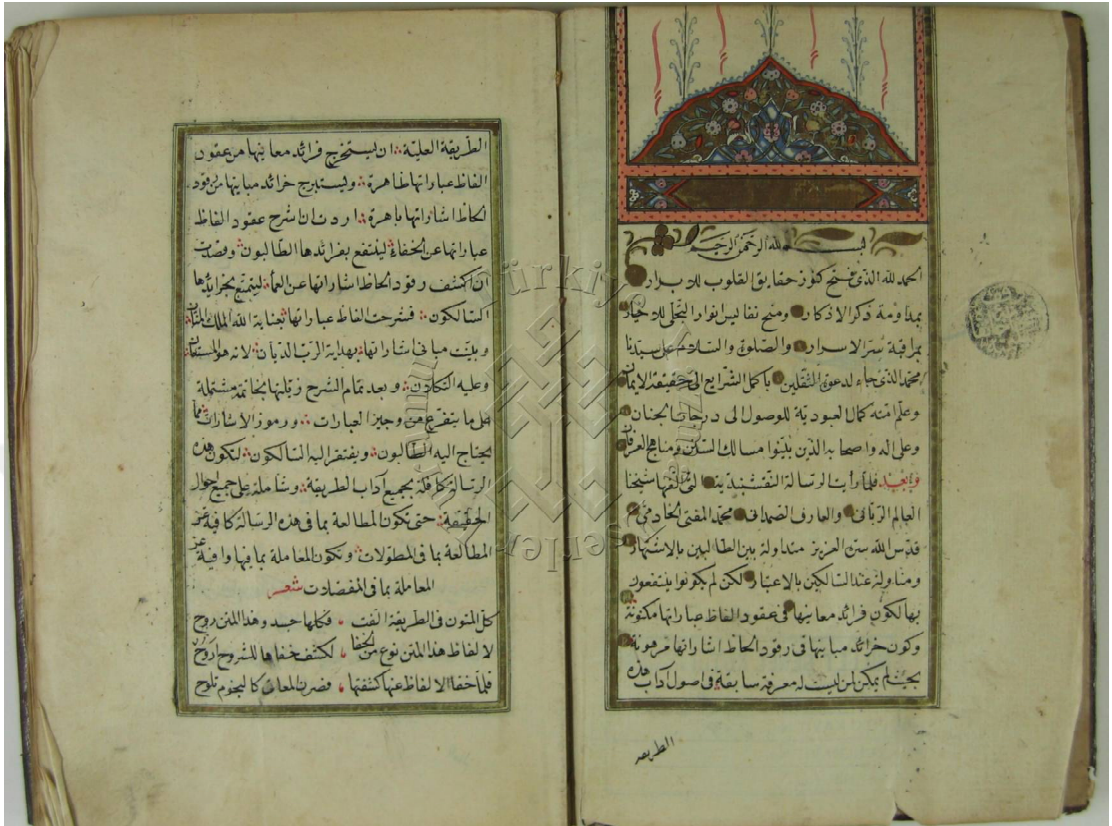 بسم الله الرحمن الرحيم
الحمد لله الذى فتح كنوز حقايق القلوب للابرار
بمداومة ذكر الاذكار ومنح نفايس انوار التجلى للاخيار
بمراقبة سر الاسرار والصلوة والسلام على سيدنا
محمد الذى جاء لدعوة الثقلين باكمل الشرايع الى حقيقة الايمان
وعلم امته كمال العبودية للوصول الى درجات الجنان
وعلى اله واصحابه الذين بينوا مسالك ومناهج العرفان
وبعد فلما رأيت الرسالة النقشبندية التى الفها شيخنا
العالم الربانى والعارف الصمدانى محمد المفتى الخادمى
قدس الله سره العزيز متداولة بين الطالبين بالاشتهار
ومتناولة عند السالكين بالاعتبار لكن لم يكونوا ينتفعون
بها لكون فرائد معانيها فى عقود الفاظ عباراتها مكنونة
وكون خرائد مبانيها فى رقود الحاظ اشاراتها مرهونة
بحيث لم يمكن لمن ليست له معرفة سابقة فى اصول آداب هذه
الطريقة
الطريقة العلية ان يستخرج فرائد معانيها من عقود
الفاظ عباراتها ظاهرة وليستبرج خرائد مبانيها من رقود
الحاظ اشاراتها باهرة اردت ان اشرح عقود الفاظ
عباراتها عن الخفاء لينتفع بفرائدها الطالبون وقصدت
ان اكشف رقود الحاظ اشاراتها عن العماء ليتمتع بخرائدها
السالكون فشرحت الفاظ عباراتها بعناية الله الملك المنان
وبينت مبانى اشاراتها بهداية الرب الديان لانه هو المستعان
وعليه التكلان وبعد تمام الشرح ذيلتها بخاتمة مشتملة
على ما يتفرع من وجيز العبارات ورموز الاشارات مما
يحتاج اليه الطالبون ويفتقر اليه السالكون لتكون هذه
الرسالة كافلة بجميع آداب الطريقة وشاملة على جميع احوال
الحقيقة حتى تكون المطالعة بما فى هذه الرسالة كافية عن
المطالعة بما فى المطولات وتكون المعاملة بما فيها وافية عن
المعاملة بما فى المفصلات شعر
كل المتون فى الطريقة الفت فكلها جسد وهذا المتن روح
لالفاظ هذا المتن نوع من الخفا لكشف خفاها للشروح
فلما خفا الالفاظ عنها كشفتها فصرن المعانى كالنجوم تلوح